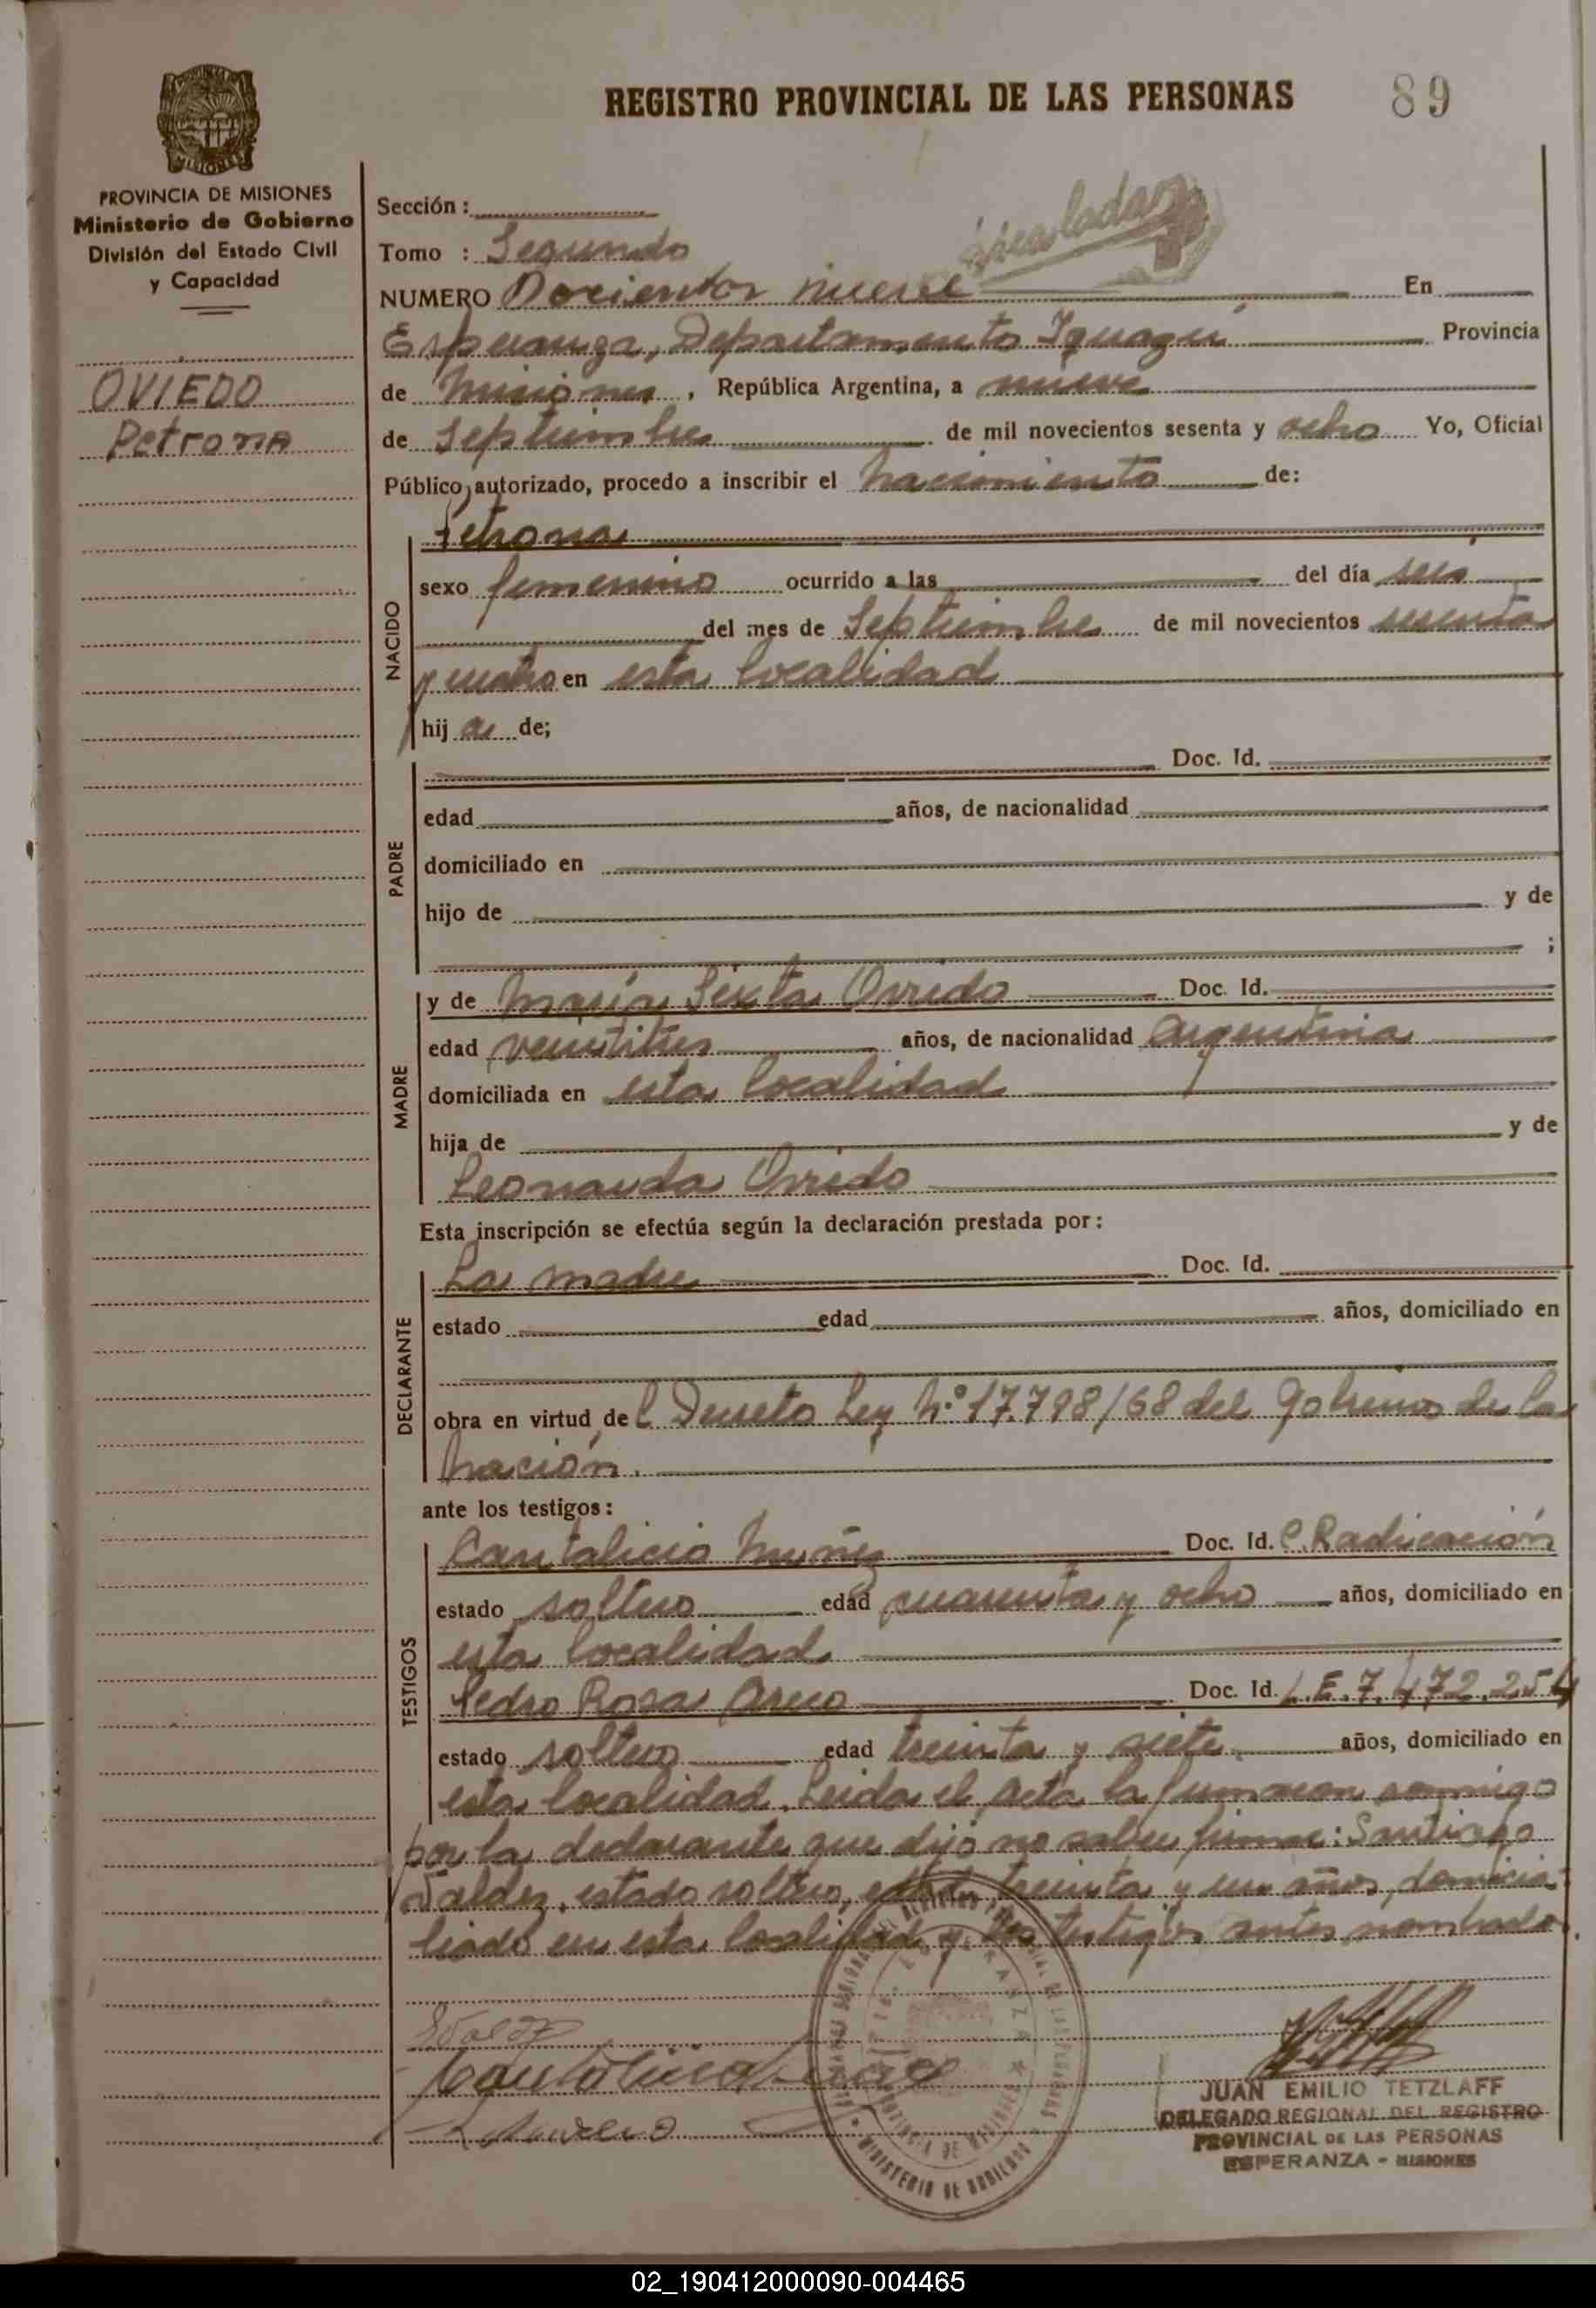 REGISTRO PROVINCIAL DE LAS PERSONAS 89
MISIONES
PROVINCIA DE MISIONES
Ministerio de Gobierno
División del Estado Civil
y Capacidad
OVIEDO
Petrona
Sección :
Tomo : Segundo
NUMERO Docientos nueve En
Esperanza, Departamento Iguazú Provincia
de Misiones, República Argentina, a nueve
de Septiembre de mil novecientos sesenta y ocho Yo, Oficial
Público autorizado, procedo a inscribir el nacimiento de:
NACIDO
Petrona
sexo femenino ocurrido a las del día seis
del mes de Septiembre de mil novecientos sesenta
y cuatro en esta localidad
hij a de;
PADRE
Doc. Id.
edad años, de nacionalidad
domiciliado en
hijo de y de
;
MADRE
y de María Sixta Oviedo Doc. Id.
edad veintitres años, de nacionalidad Argentina
domiciliada en esta localidad
hija de y de
Leonarda Oviedo
Esta inscripción se efectúa según la declaración prestada por:
DECLARANTE
La madre Doc. Id.
estado edad años, domiciliado en
obra en virtud de l Decreto Ley N.º 17.798/68 del Gobierno de la
Nación.
ante los testigos:
TESTIGOS
Cantalicio Muñez Doc. Id. C. Radicación
estado soltero edad cuarenta y ocho años, domiciliado en
esta localidad
Pedro Rosa Doc. Id. L.E. 7.472.254
estado soltero edad treinta y siete años, domiciliado en
esta localidad. Leida el Acta la firmaron conmigo
por la declarante que dijo no saber firmar: Santiago
Valdez, estado soltero, edad treinta y un años, domici-
liado en esta localidad y los testigos antes nombrados.
JUAN EMILIO TETZLAFF
DELEGADO REGIONAL DEL REGISTRO
PROVINCIAL DE LAS PERSONAS
ESPERANZA - MISIONES
02_190412000090-004465